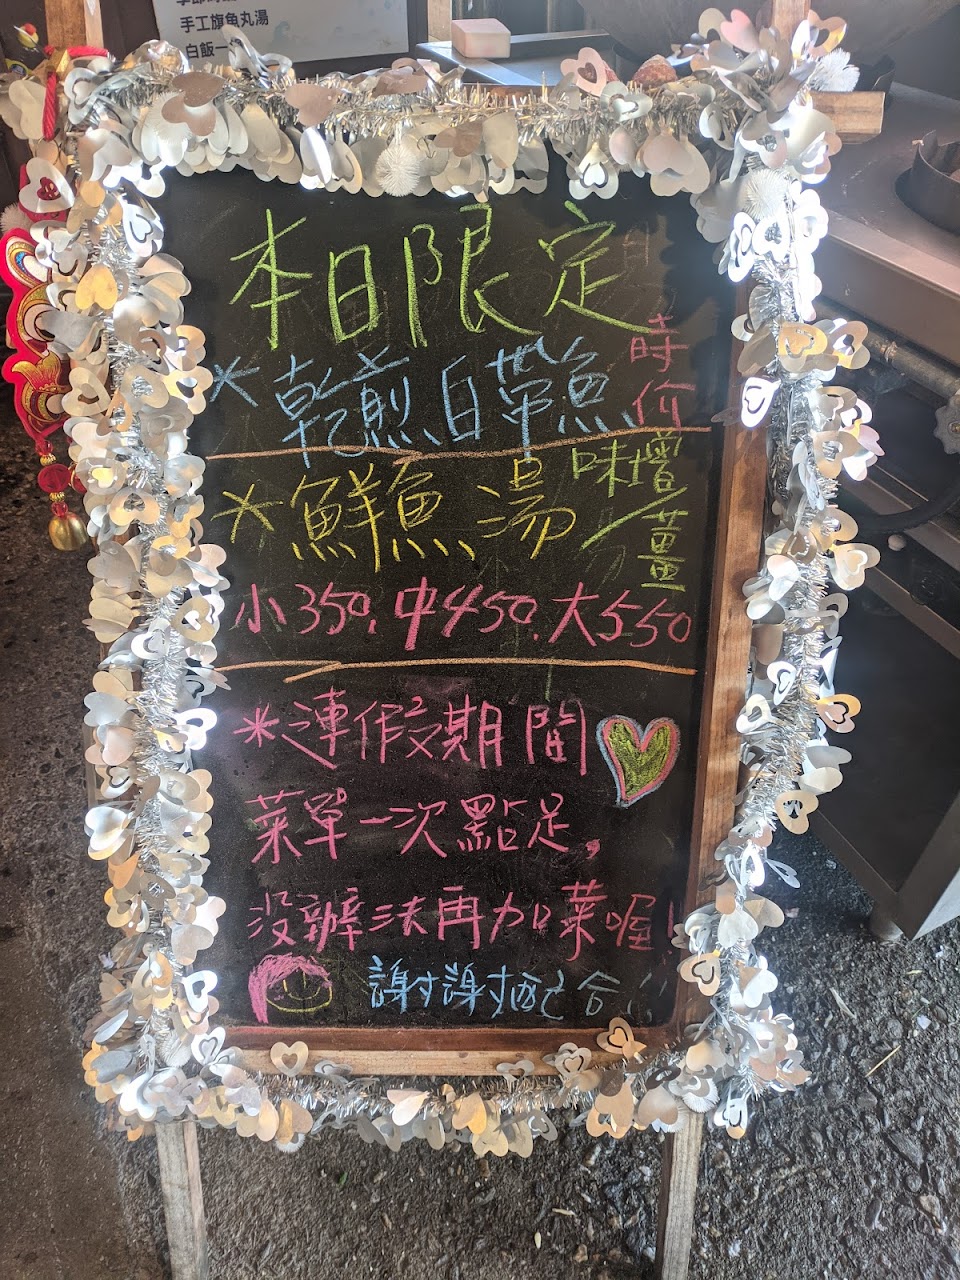 手工旗魚丸湯
白飯一
本日限定
*乾煎白帶魚 時价
*鮮魚湯 味增/薑
小350,中450,大550
*連假期間
菜單一次點足,
沒辦法再加菜喔!
謝謝配合!!